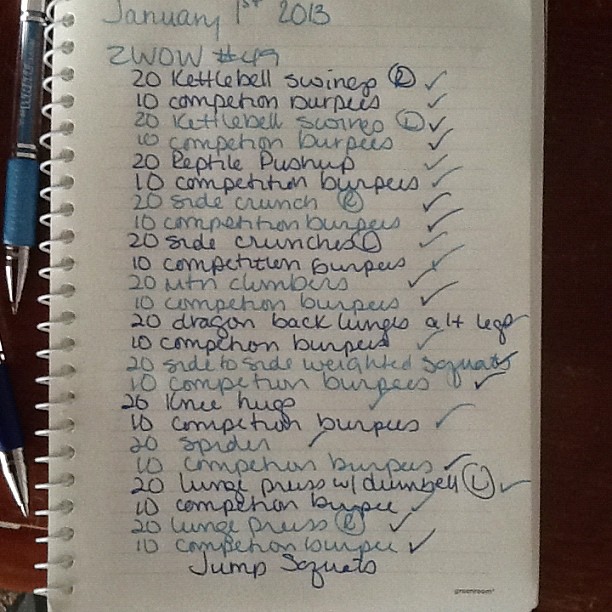 January 1st 2013
ZWOW #49
20 Kettlebell swings R ✓
10 competion burpees ✓
20 Kettlebell swings L ✓
10 competion burpees ✓
20 Reptile Pushup ✓
10 competition burpees ✓
20 side crunch R ✓
10 competition burpees ✓
20 side crunches L ✓
10 competition burpees ✓
20 mtn climbers ✓
10 competion burpees ✓
20 dragon back lunges alt legs ✓
10 competion burpees ✓
20 side to side weighted squats ✓
10 competion burpees ✓
20 Knee hugs ✓
10 competion burpees ✓
20 spider ✓
10 competion burpees ✓
20 lunge press w/ dumbell L ✓
10 competion burpee ✓
20 lunge press R ✓
10 competion burpee ✓
Jump Squats
greenroom